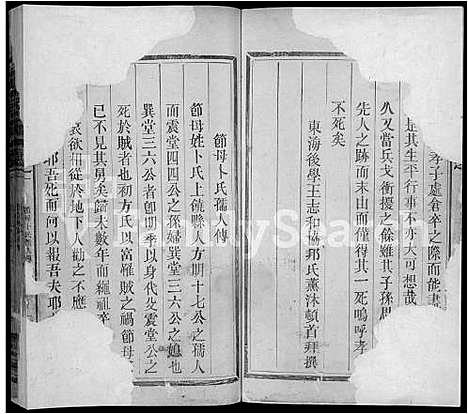 孝子處倉卒之際而能畫
是其生平行事不亦大可想哉
久又當兵戈衝擾之餘雖其子孫思
先人之跡而末由而僅得其一死嗚呼孝
不死矣
東海後學王志和協邦氏薰沐頓首拜撰
節母卜氏孺人傳
節母姓卜氏上饒縣人方期十七公之孺人
而震堂四四公之孫婦巽堂三六公之媳也
巽堂三六公者卽明季以身代父震堂公之
死於賊者也初方氏以富罹賊之禍節母
已不見其舅矣歸未數年而繩祖卒
哀欲相從於地下人勸之不應
耶吾死而何以報吾夫耶
FamilySearch